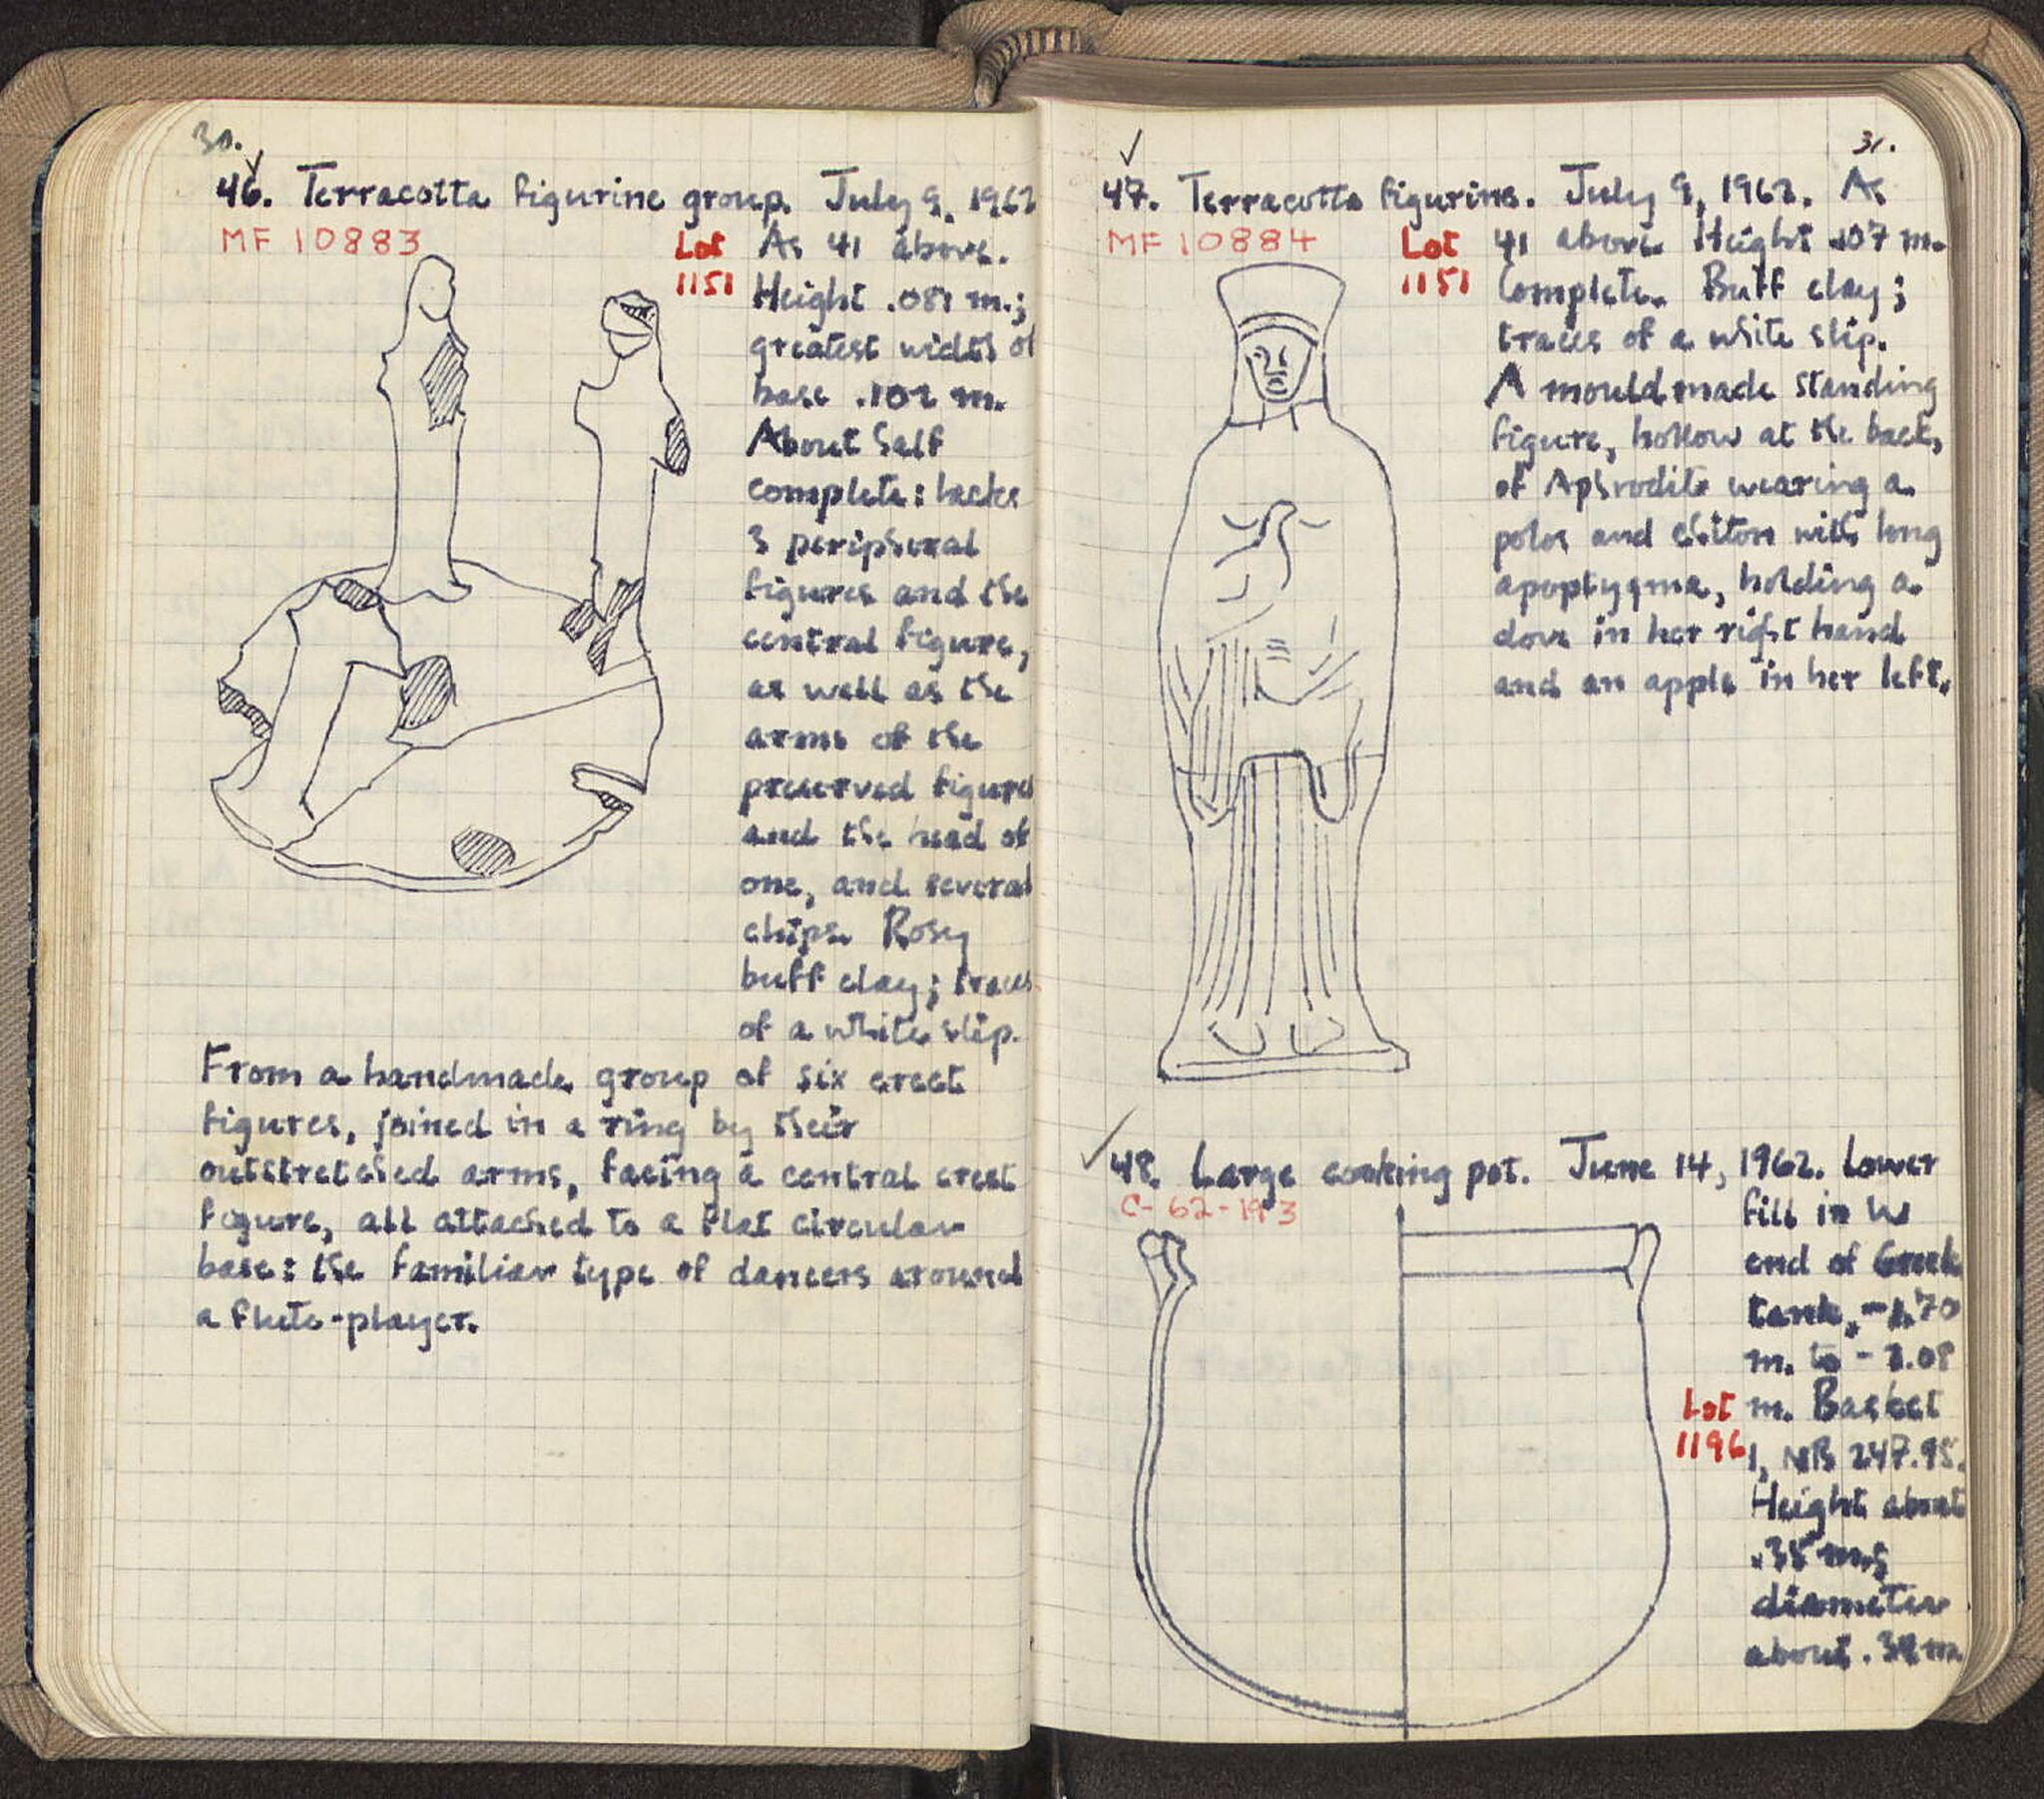 30.
46. Terracotta figurine group. July 9, 1962
MF 10883
Lot
1151
As 41 above.
Height .081 m.;
greatest width of
base .102 m.
About half
complete: lacks
3 peripheral
figures and the
central figure,
as well as the
arms of the
preserved figures
and the head of
one, and several
chips. Rosy
buff clay; traces
of a white slip.
From a handmade group of six erect
figures, joined in a ring by their
outstretched arms, facing a central erect
figure, all attached to a flat circular
base: the familiar type of dancers around
a flute-player.
31.
47. Terracotta figurine. July 9, 1962. As
MF 10884
Lot
1151
41 above. Height .107 m.
Complete. Buff clay;
traces of a white slip.
A mouldmade standing
figure, hollow at the back,
of Aphrodite wearing a
polos and chiton with long
apoptygma, holding a
dove in her right hand
and an apple in her left.
48. Large cooking pot. June 14, 1962. Lower
C-62-193
fill in W
end of Greek
tank,
m. to
Lot
1196
m. Basket
1, NB 247.95.
Height about
diameter
about